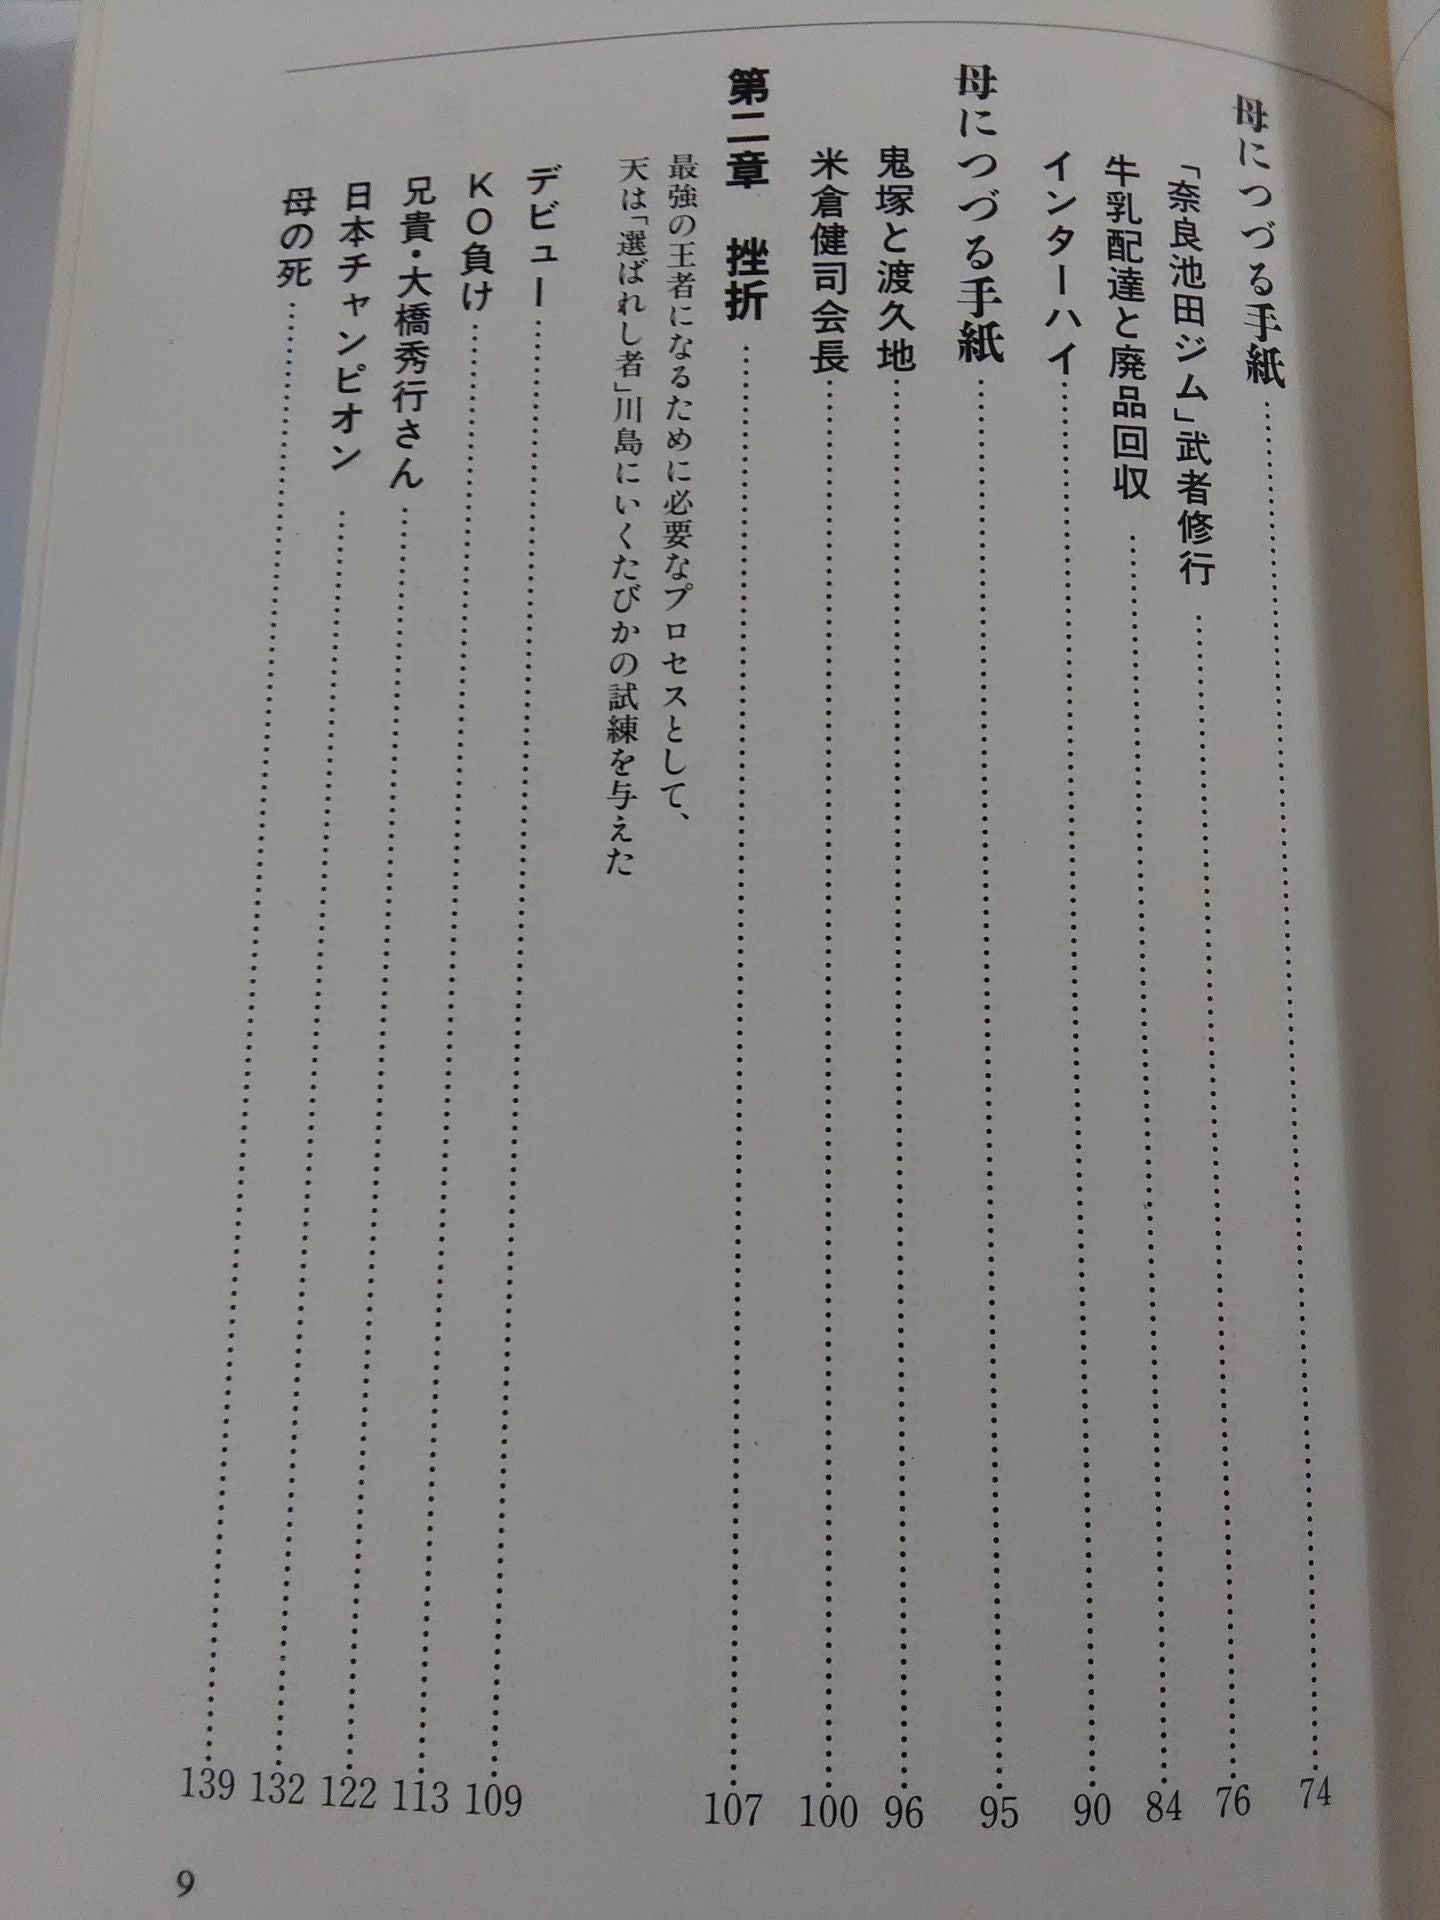 母につづる手紙……74
「奈良池田ジム」武者修行……76
牛乳配達と廃品回収……84
インターハイ……90
母につづる手紙……95
鬼塚と渡久地……96
米倉健司会長……100
第二章 挫折……107
最強の王者になるために必要なプロセスとして、
天は「選ばれし者」川島にいくたびかの試練を与えた
デビュー……109
KO負け……113
兄貴・大橋秀行さん……122
日本チャンピオン……132
母の死……139
9